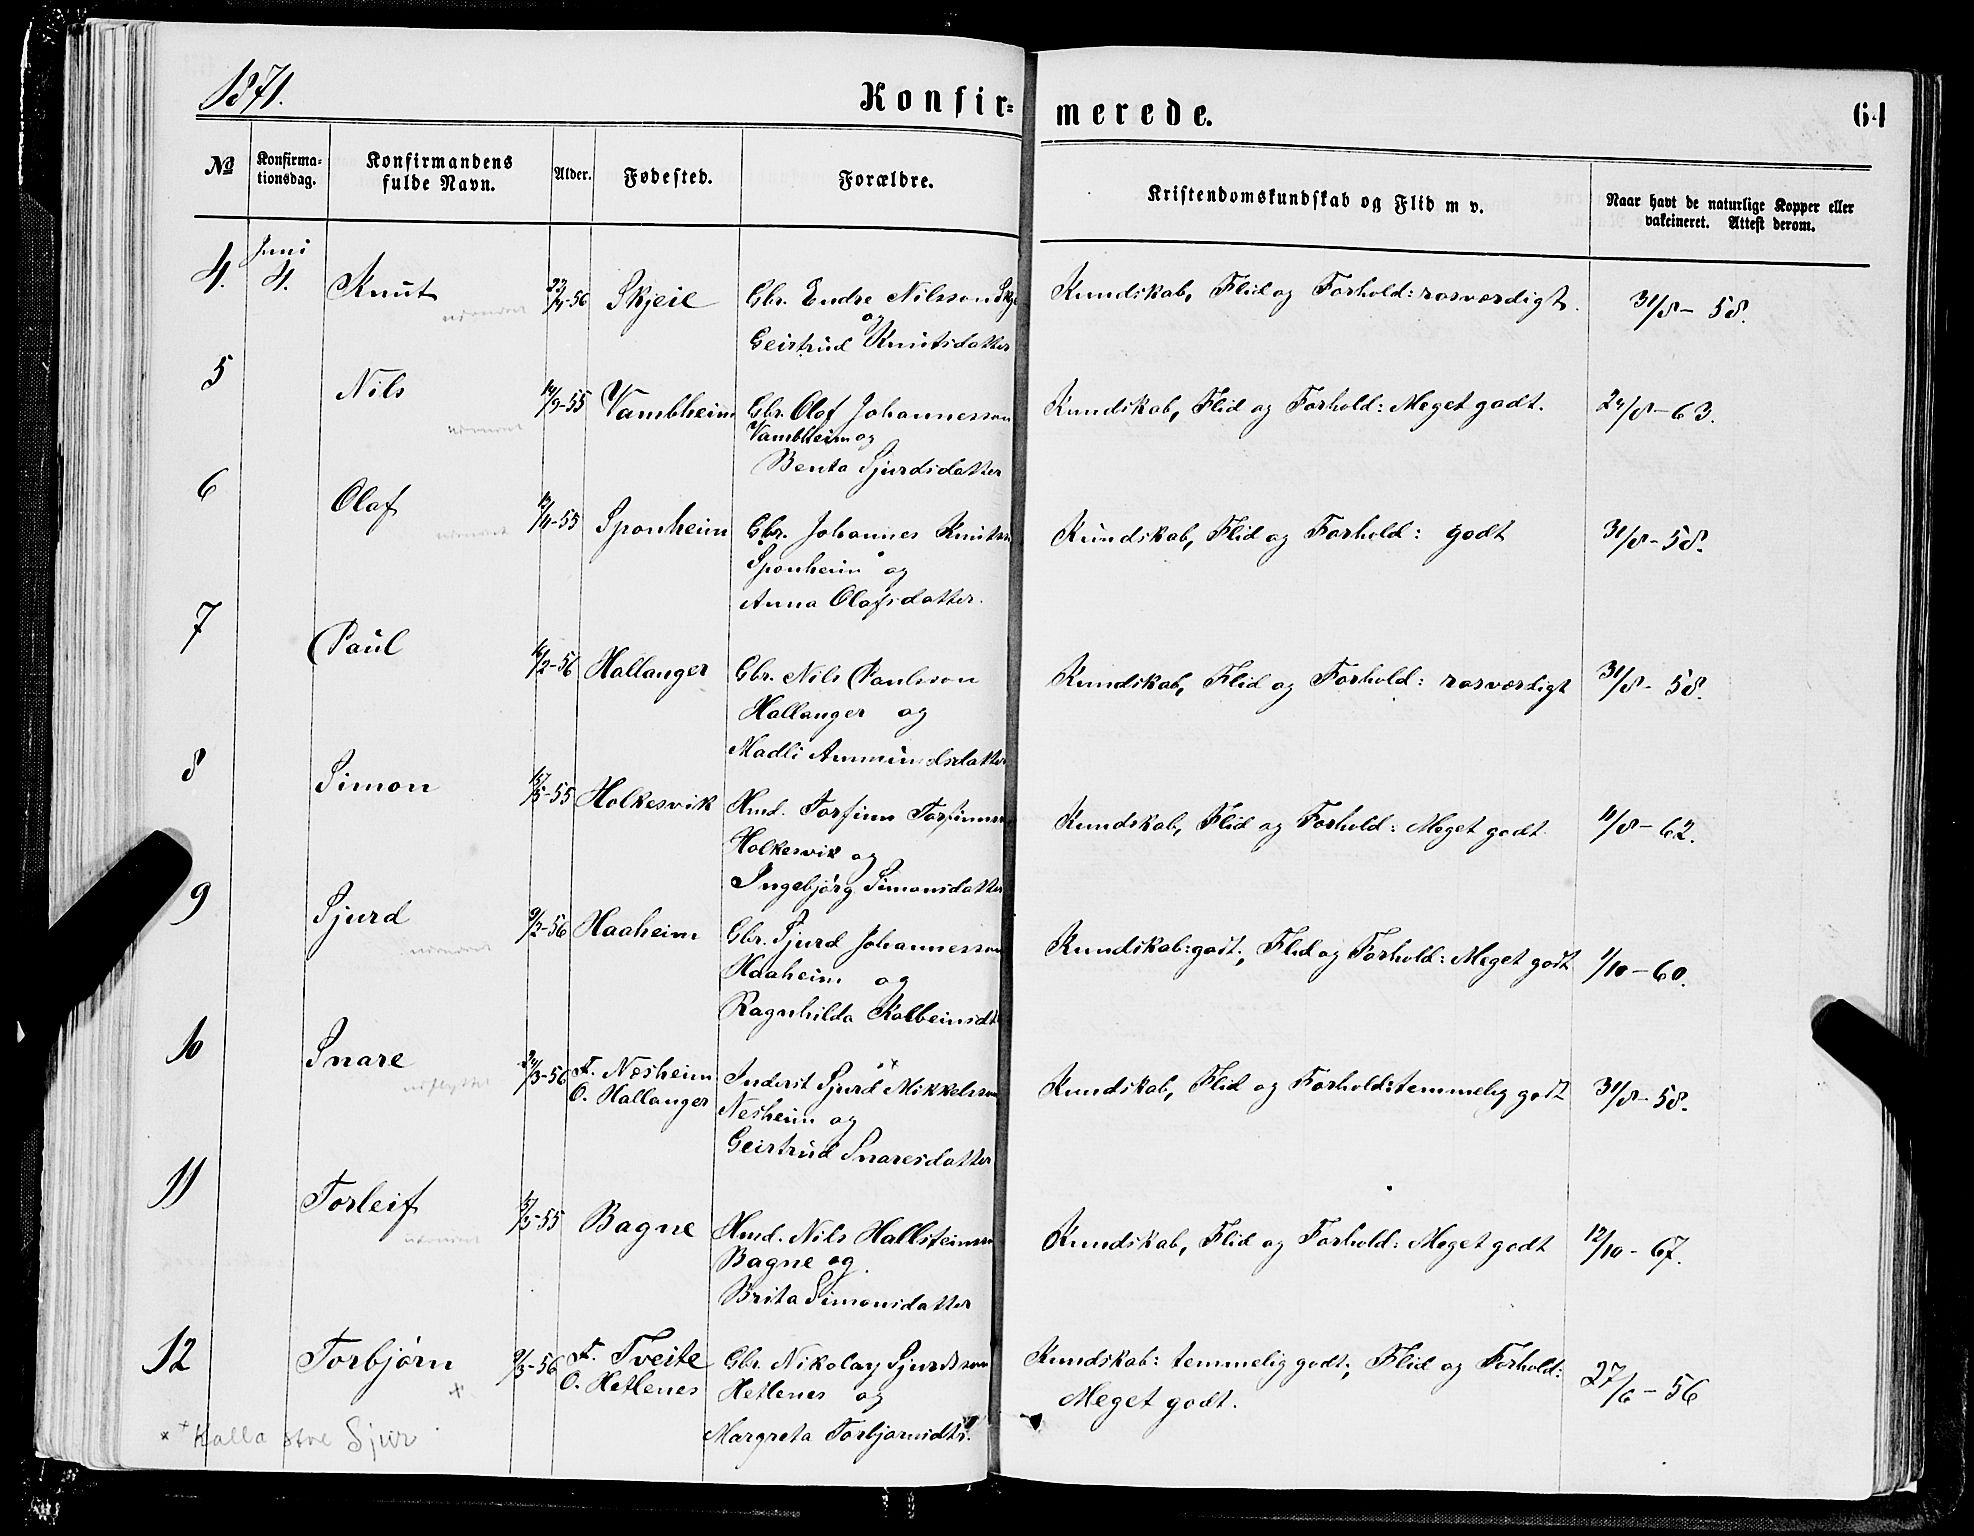 1871.
Konfir=
merede.
64
No
Konfirma-
tionsdag.
Konfirmandens
fulde Navn.
Alder.
Fødested.
Forældre.
Kristendomskundskab og Flid m v.
Naar havt de naturlige Kopper eller
vakcineret. Attest derom.
4. Juni 4. Knut -56 Skjeie
Gbr. Endre Nilsson
og
Geirtrud Knutsdatter
Kundskab, Flid og Forhold: rosværdigt.
31/8- 58.
5 Nils 14/9-55 Vambheim
Gbr. Olof Johannesson
Vambheim og
Benta Sjurdsdatter
Kundskab, Flid og Forhold: Meget godt.
24/8-63.
6 Olaf -55 Sponheim
Gbr. Johannes Knutsen
Sponheim og
Anna Olafsdatter.
Kundskab, Flid og Forhold: godt
31/8-58.
7 Paul 16/2-56 Hallanger
Gbr. Nils Paulsson
Hallanger og
Madli Ammundsdatter
Kundskab, Flid og Forhold: rosværdigt
31/8- 58.
8 Simon -55 Holkesvik
Hmd. Torfinn Torfinnson
Holkesvik og
Ingebjörg Simonsdatter
Kundskab, Flid og Forhold: Meget godt.
11/8-62.
9 Sjurd 9/2-56 Haaheim
Gbr. Sjurd Johannesson
Haaheim og
Ragnhilda Kolbeinsdt
Kundskab: godt; Flid og Forhold: Meget godt
1/10-60.
10 Snare 24/3-56 F. Nesheim
O. Hallanger
Inderst Sjurd Mikkelsson
Nesheim og
Geirtrud Snaresdatter
Kundskab, Flid og Forhold: temmelig godt
31/8-58.
11 Torleif -55 Bagne
Hmd. Nils Hallsteinson
Bagne og
Brita Simonsdatter
Kundskab, Flid og Forhold: Meget godt
12/10-67.
12 Torbjørn 9/3-56 F. Tveite
O. Hetlenes
Gbr. Nikolay Sjurdsson
Hetlenes og
Margreta Torbjørnsdtr.
Kundskab: temmelig godt; Flid og Forhold:
Meget godt.
27/6-56
x + Kalla Sjur